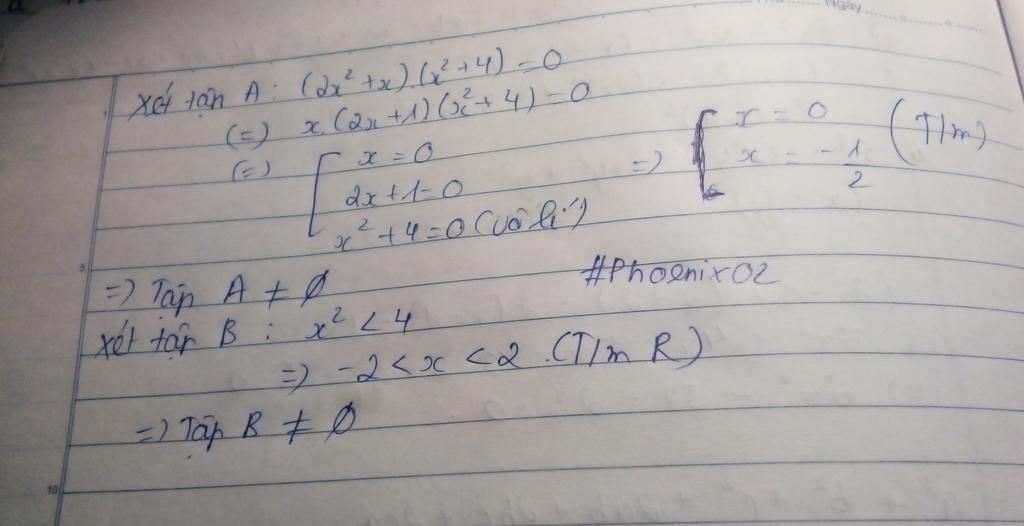 Ngày
Xét tập A: (2x² + x).(x² + 4) = 0
(=) x.(2x + 1)(x² + 4) = 0
(=) [ x = 0 => [ x = 0 (T/m)
2x + 1 = 0 x = -1/2
x² + 4 = 0 (vô lí)
=) Tập A ≠ ∅ #Phoenix02
Xét tập B: x² < 4
=) -2 < x < 2 (T/m R)
=) Tập B ≠ ∅
5
10